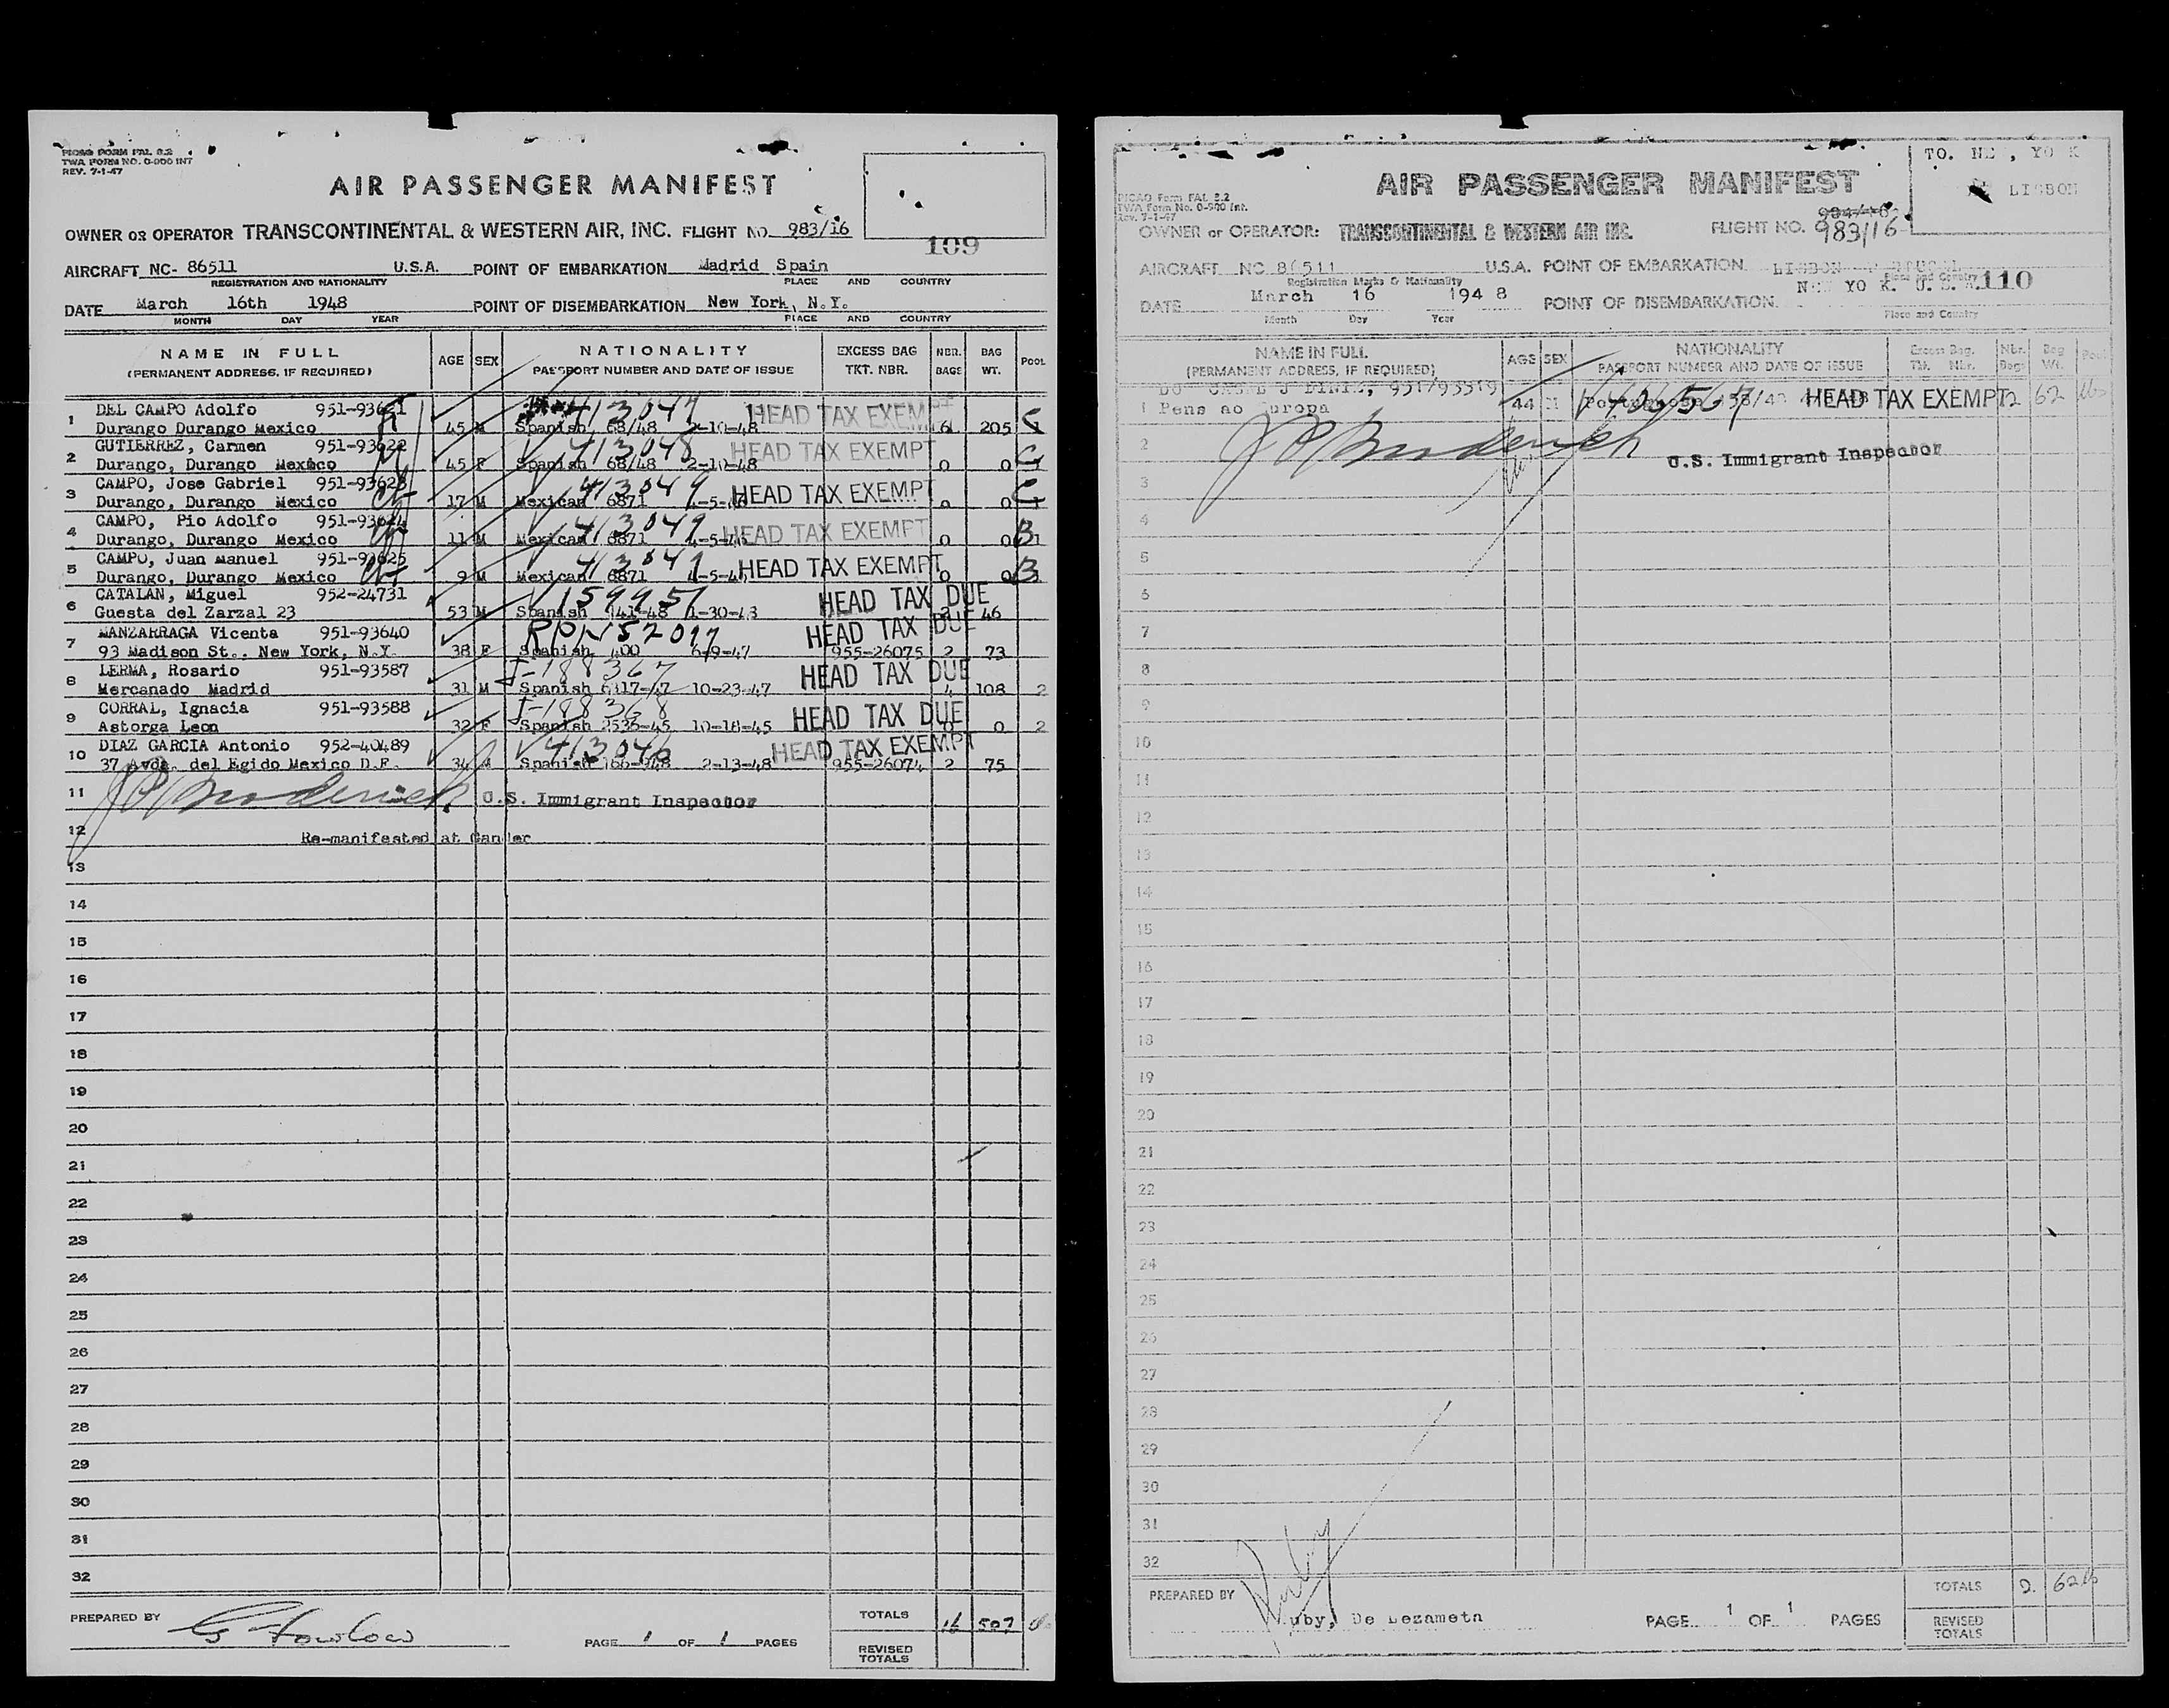 PICAO FORM FAL 2.2
TWA FORM NO. 0-900 INT
REV. 7-1-47
AIR PASSENGER MANIFEST
OWNER OR OPERATOR TRANSCONTINENTAL & WESTERN AIR, INC. FLIGHT NO. 983/16
109
AIRCRAFT NC- 86511 U.S.A. POINT OF EMBARKATION Madrid Spain
REGISTRATION AND NATIONALITY PLACE AND COUNTRY
DATE March 16th 1948 POINT OF DISEMBARKATION New York, N.Y.
MONTH DAY YEAR PLACE AND COUNTRY
NAME IN FULL AGE SEX NATIONALITY EXCESS BAG NBR. BAG POOL
(PERMANENT ADDRESS, IF REQUIRED) PASSPORT NUMBER AND DATE OF ISSUE TKT. NBR. BAGS WT.
DEL CAMPO Adolfo 413047 HEAD TAX EXEMPT
1 Durango Durango Mexico 45 Spanish 68/48 2-10-48 205
GUTIERREZ, Carmen 951-93622 413048 HEAD TAX EXEMPT
2 Durango, Durango Mexico 45 F Spanish 68/48 2-10-48 0 0
CAMPO, Jose Gabriel 951-93623 413049 HEAD TAX EXEMPT
3 Durango, Durango Mexico 17 M Mexican 6871 0 0
CAMPO, Pio Adolfo 951-93624 413049 HEAD TAX EXEMPT
4 Durango, Durango Mexico 11 M Mexican 6871 0 0 B
CAMPO, Juan Manuel 951-93625 413049 HEAD TAX EXEMPT
5 Durango, Durango Mexico 9 M Mexican 6871 0 0 B
CATALAN, Miguel 952-24731 HEAD TAX DUE
6 Guesta del Zarzal 23 53 M Spanish 46
MANZARRAGA Vicenta 951-93640 HEAD TAX DUE
7 93 Madison St., New York, N.Y. 38 F Spanish 400 6-9-47 955-26075 2 73
LERMA, Rosario 951-93587 J-188367 HEAD TAX DUE
8 Mercanado Madrid 31 M Spanish 10-23-47 4 108 2
CORRAL, Ignacia 951-93588 J-188368 HEAD TAX DUE
9 Astorga Leon 32 F Spanish 2536-45 10-18-45 0 0 2
DIAZ GARCIA Antonio 952-40489 413046 HEAD TAX EXEMPT
10 37 Avda. del Egido Mexico D.F. 34 Spanish 2-13-48 955-26074 2 75
11 U.S. Immigrant Inspector
12 Re-manifested at Gander
13
14
15
16
17
18
19
20
21
22
23
24
25
26
27
28
29
30
31
32
PREPARED BY TOTALS 16 507
PAGE 1 OF 1 PAGES REVISED TOTALS
TO.
LISBON
AIR PASSENGER MANIFEST
PICAO Form FAL 2.2
TWA Form No. 0-900 Int.
Rev. 7-1-47
OWNER or OPERATOR: TRANSCONTINENTAL & WESTERN AIR INC. FLIGHT NO. 983/16
AIRCRAFT NC 86511 U.S.A. POINT OF EMBARKATION LISBON
Registration Marks & Nationality Place and Country
110
DATE March 16 1948 POINT OF DISEMBARKATION
Month Day Year Place and Country
NAME IN FULL AGE SEX NATIONALITY Excess Bag. Nbr. Bag Pool
(PERMANENT ADDRESS, IF REQUIRED) PASSPORT NUMBER AND DATE OF ISSUE Tkt. Nbr. Bags Wt.
951/93519
1 44 HEAD TAX EXEMPT 2 62
2 U.S. Immigrant Inspector
3
4
5
6
7
8
9
10
11
12
13
14
15
16
17
18
19
20
21
22
23
24
25
26
27
28
29
30
31
32
PREPARED BY TOTALS 2 62
De Lezameta PAGE 1 OF 1 PAGES REVISED TOTALS